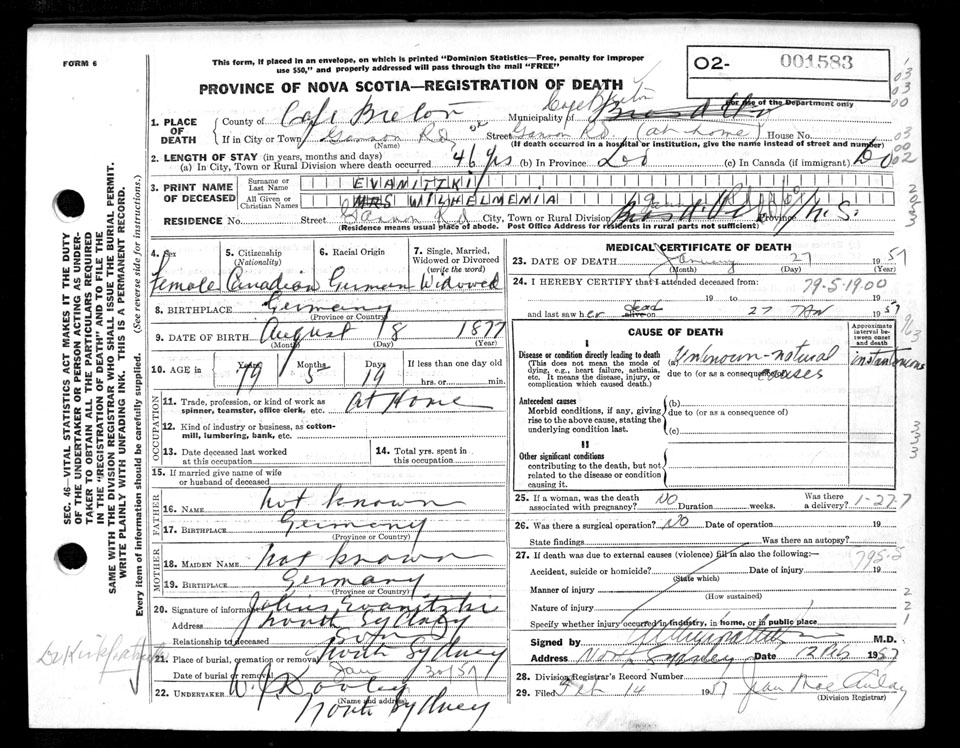 FORM 6
This form, if placed in an envelope, on which is printed "Dominion Statistics—Free, penalty for improper
use $50," and properly addressed will pass through the mail "FREE"
O2- 001583
For use of the Department only
PROVINCE OF NOVA SCOTIA—REGISTRATION OF DEATH
1. PLACE OF DEATH
County of Cape Breton Municipality of Cape Breton
If in City or Town Gannon Rd or Street Gannon Rd (at home) House No.
(Name) (If death occurred in a hospital or institution, give the name instead of street and number)
2. LENGTH OF STAY (in years, months and days)
(a) In City, Town or Rural Division where death occurred 46 yrs (b) In Province Do (c) In Canada (if immigrant) Do
3. PRINT NAME OF DECEASED
Surname or Last Name EVANITZKI
All Given or Christian Names MRS WILHELMEMIA
RESIDENCE No. Street Gannon Rd City, Town or Rural Division Province N.S.
(Residence means usual place of abode. Post Office Address for residents in rural parts not sufficient)
4. Sex 5. Citizenship (Nationality) 6. Racial Origin 7. Single, Married, Widowed or Divorced (write the word)
Female Canadian German Widowed
8. BIRTHPLACE Germany
(Province or Country)
9. DATE OF BIRTH August 8 1877
(Month) (Day) (Year)
10. AGE in Years Months Days If less than one day old
79 5 19 hrs. or min.
OCCUPATION
11. Trade, profession, or kind of work as spinner, teamster, office clerk, etc. At Home
12. Kind of industry or business, as cotton-mill, lumbering, bank, etc.
13. Date deceased last worked at this occupation
14. Total yrs. spent in this occupation
15. If married give name of wife or husband of deceased
FATHER
16. NAME not known
17. BIRTHPLACE Germany
(Province or Country)
MOTHER
18. MAIDEN NAME not known
19. BIRTHPLACE Germany
(Province or Country)
20. Signature of informant Evanitzki
Address North Sydney
Relationship to deceased Son
21. Place of burial, cremation or removal North Sydney
Date of burial or removal Jan 30/57
22. UNDERTAKER W. J. Dooley
(Name and address)
North Sydney
MEDICAL CERTIFICATE OF DEATH
23. DATE OF DEATH January 27 1957
(Month) (Day) (Year)
24. I HEREBY CERTIFY that I attended deceased from: 79-5-19.00
19 to 19
and last saw her alive on dead 27 JAN 1957
CAUSE OF DEATH
Approximate interval between onset and death
I
Disease or condition directly leading to death
(This does not mean the mode of dying, e.g., heart failure, asthenia, etc. It means the disease, injury, or complication which caused death.)
(a) Unknown-natural causes instantaneous
due to (or as a consequence of)
Antecedent causes
Morbid conditions, if any, giving rise to the above cause, stating the underlying condition last.
(b)
due to (or as a consequence of)
(c)
II
Other significant conditions
contributing to the death, but not related to the disease or condition causing it.
25. If a woman, was the death associated with pregnancy? NO Duration weeks. Was there a delivery? 1-27-7
26. Was there a surgical operation? NO Date of operation 19
State findings Was there an autopsy?
27. If death was due to external causes (violence) fill in also the following: 795-5
Accident, suicide or homicide? Date of injury 19
(State which)
Manner of injury
(How sustained)
Nature of injury
Specify whether injury occurred in industry, in home, or in public place
Signed by M.D.
Address North Sydney Date 12 Feb 1957
28. Division Registrar's Record Number
29. Filed Feb 14 1957 Jean MacAulay
(Division Registrar)
SEC. 46—VITAL STATISTICS ACT MAKES IT THE DUTY
OF THE UNDERTAKER OR PERSON ACTING AS UNDER-
TAKER TO OBTAIN ALL THE PARTICULARS REQUIRED
IN THE "REGISTRATION OF DEATH" AND TO FILE THE
SAME WITH THE DIVISION REGISTRAR WHO SHALL ISSUE THE BURIAL PERMIT.
WRITE PLAINLY WITH UNFADING INK. THIS IS A PERMANENT RECORD.
Every item of information should be carefully supplied. (See reverse side for instructions.)
Dr Kirkpatrick